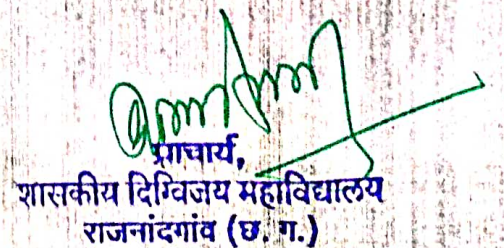 प्राचार्य,
शासकीय दिग्विजय महाविद्यालय
राजनांदगांव (छ. ग.)